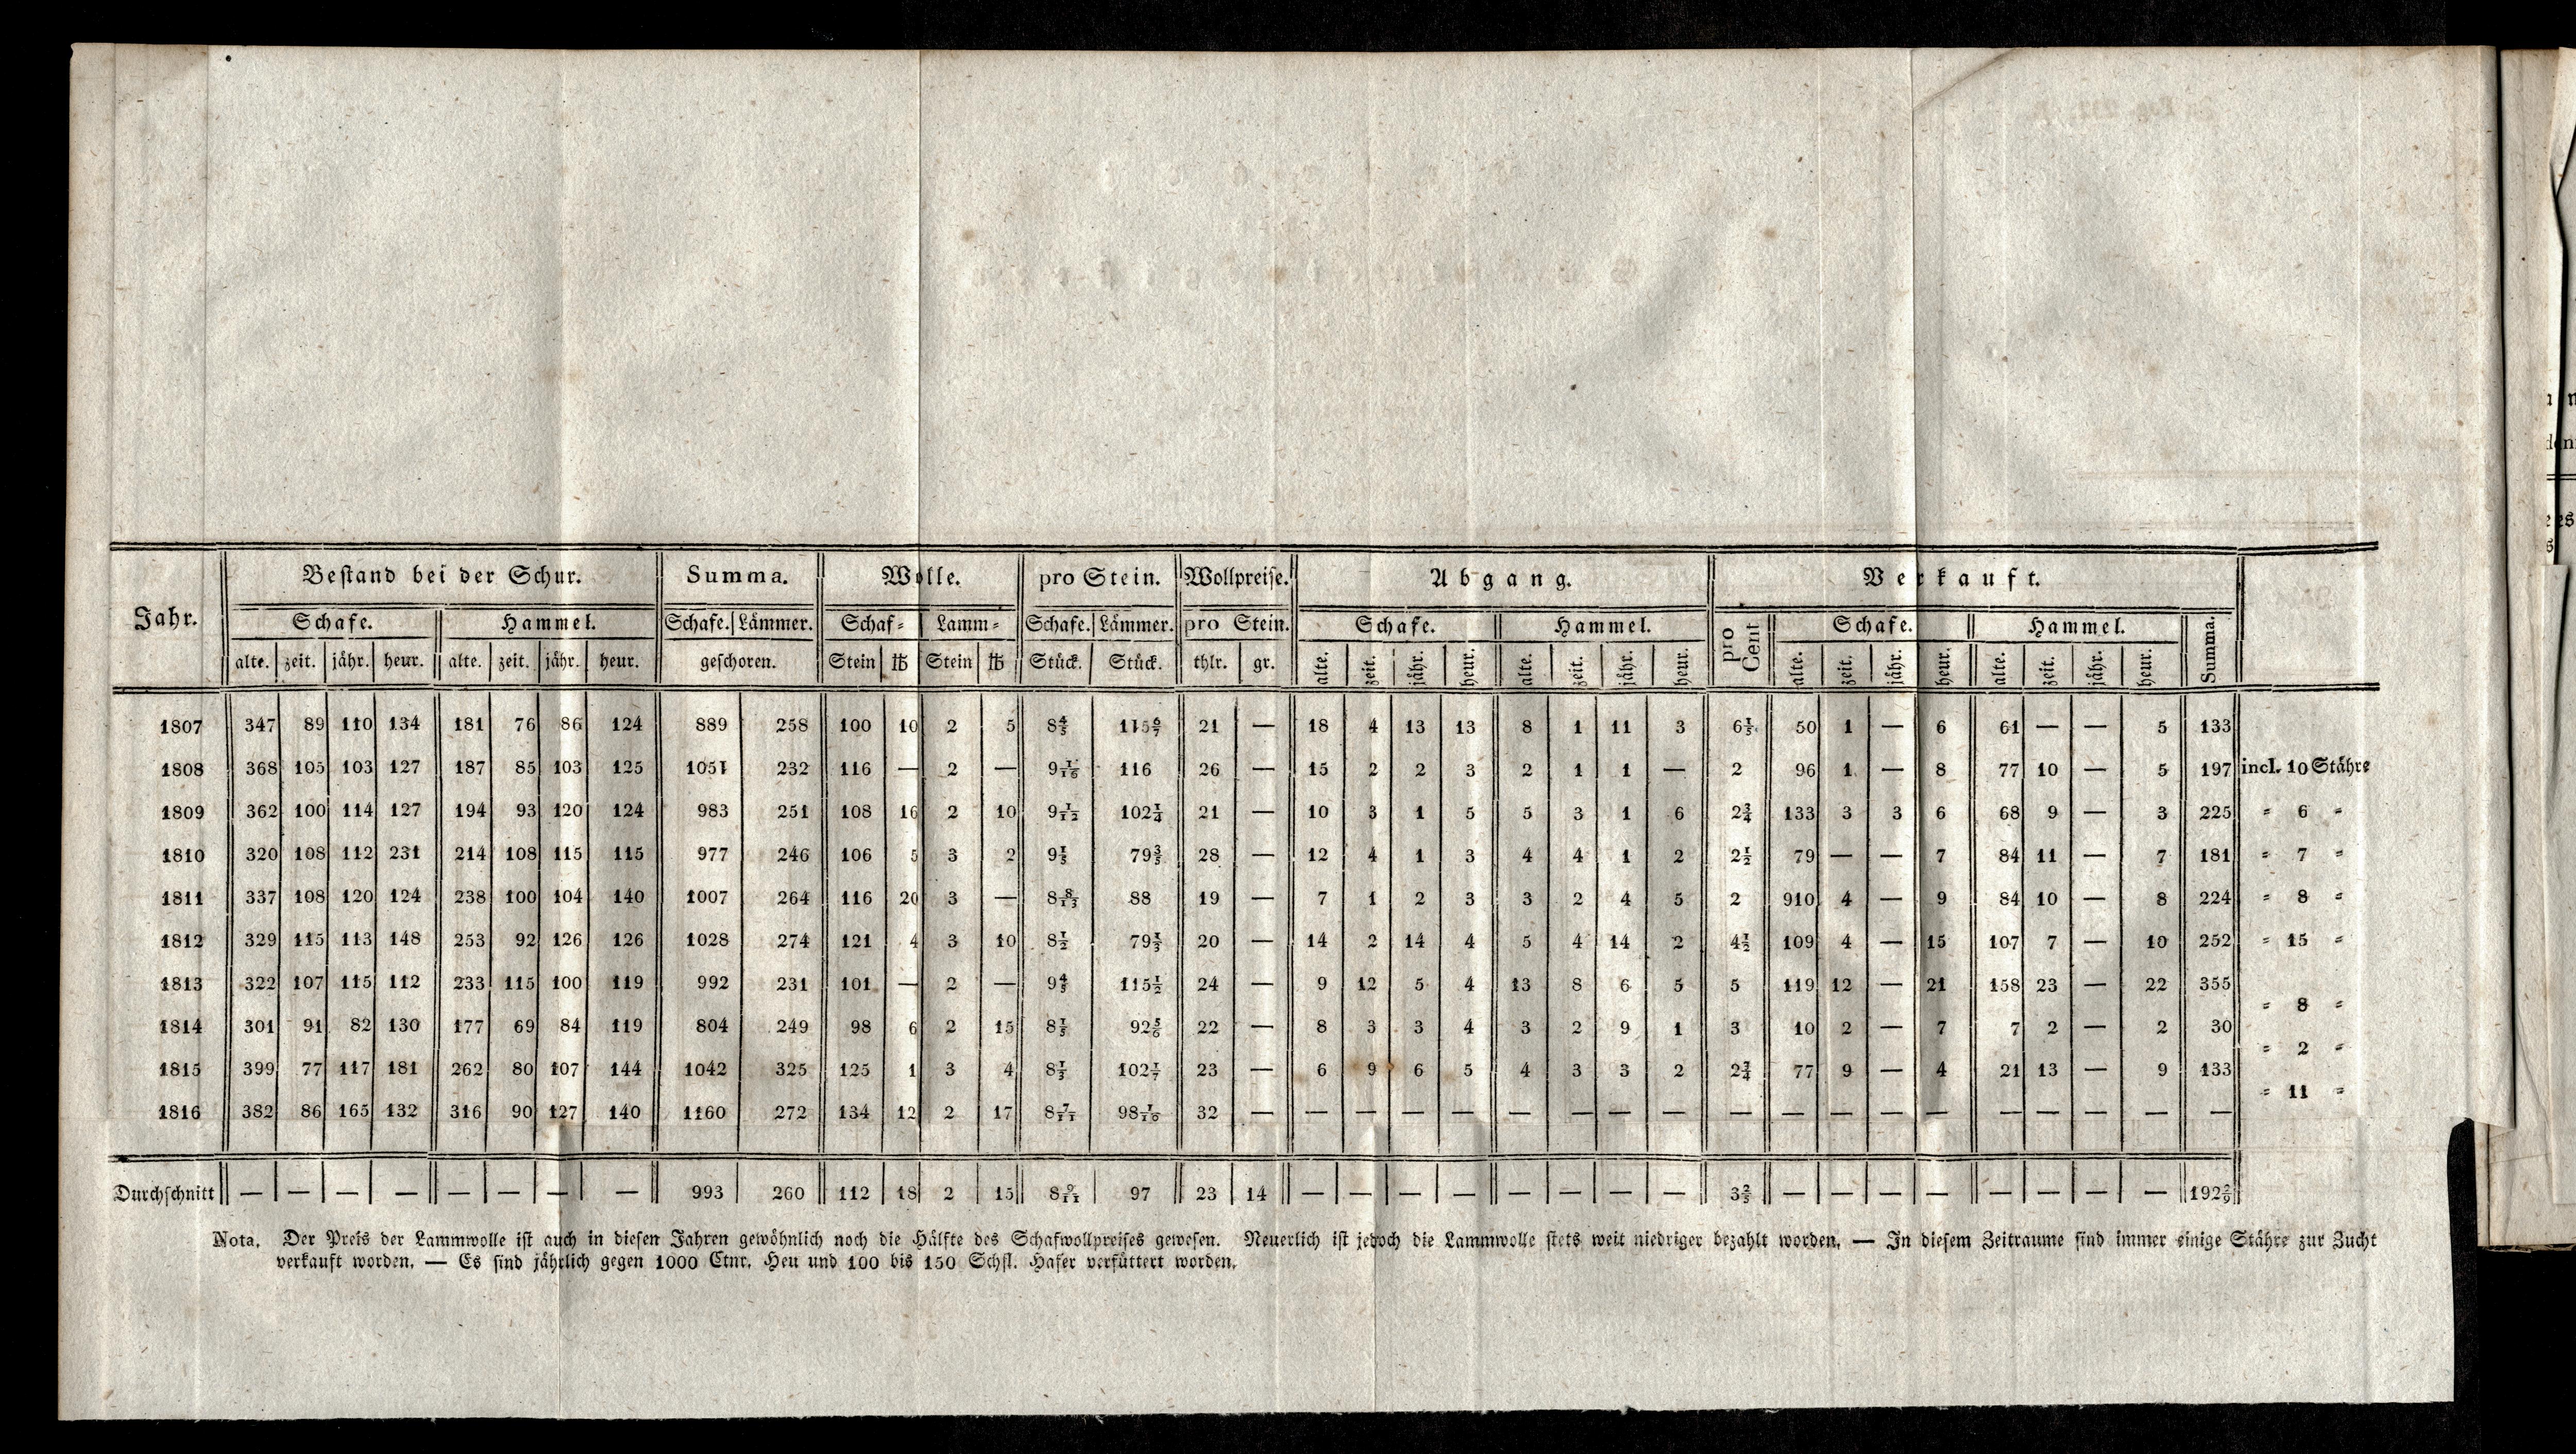 Bestand bei der Schur. Summa. Wolle. pro Stein. Wollpreise. Abgang. Verkauft.
Jahr. Schafe. Hammel. Schafe. Lämmer. Schaf= Lamm= Schafe. Lämmer. pro Stein. Schafe. Hammel. pro Cent Schafe. Hammel. Summa.
alte. zeit. jähr. heur. alte. zeit. jähr. heur. geschoren. Stein ℔ Stein ℔ Stück. Stück. thlr. gr. alte. zeit. jähr. heur. alte. zeit. jähr. heur. alte. zeit. jähr. heur. alte. zeit. jähr. heur.
1807 347 89 110 134 181 76 86 124 889 258 100 10 2 5 8 4/5 115 6/7 21 — 18 4 13 13 8 1 11 3 6 1/5 50 1 — 6 61 — — 5 133
1808 368 105 103 127 187 85 103 125 1051 232 116 — 2 — 9 1/16 116 26 — 15 2 2 3 2 1 1 — 2 96 1 — 8 77 10 — 5 197 incl. 10 Stähre
1809 362 100 114 127 194 93 120 124 983 251 108 16 2 10 9 1/12 102 1/4 21 — 10 3 1 5 5 3 1 6 2 3/4 133 3 3 6 68 9 — 3 225 = 6 =
1810 320 108 112 231 214 108 115 115 977 246 106 5 3 2 9 1/5 79 3/5 28 — 12 4 1 3 4 4 1 2 2 1/2 79 — — 7 84 11 — 7 181 = 7 =
1811 337 108 120 124 238 100 104 140 1007 264 116 20 3 — 8 8/13 88 19 — 7 1 2 3 3 2 4 5 2 910 4 — 9 84 10 — 8 224 = 8 =
1812 329 115 113 148 253 92 126 126 1028 274 121 4 3 10 8 1/2 79 1/3 20 — 14 2 14 4 5 4 14 2 4 1/2 109 4 — 15 107 7 — 10 252 = 15 =
1813 322 107 115 112 233 115 100 119 992 231 101 — 2 — 9 4/5 115 1/2 24 — 9 12 5 4 13 8 6 5 5 119 12 — 21 158 23 — 22 355
= 8 =
1814 301 91 82 130 177 69 84 119 804 249 98 6 2 15 8 1/5 92 5/6 22 — 8 3 3 4 3 2 9 1 3 10 2 — 7 7 2 — 2 30
= 2 =
1815 399 77 117 181 262 80 107 144 1042 325 125 1 3 4 8 1/3 102 1/7 23 — 6 9 6 5 4 3 3 2 2 3/4 77 9 — 4 21 13 — 9 133
= 11 =
1816 382 86 165 132 316 90 127 140 1160 272 134 12 2 17 8 7/11 98 1/10 32 — — — — — — — — — — — — — — — — — — —
Durchschnitt — — — — — — — — 993 260 112 18 2 15 8 9/11 97 23 14 — — — — — — — — 3 2/5 — — — — — — — — 192 2/9
Nota. Der Preis der Lammwolle ist auch in diesen Jahren gewöhnlich noch die Hälfte des Schafwollpreises gewesen. Neuerlich ist jedoch die Lammwolle stets weit niedriger bezahlt worden. — In diesem Zeitraume sind immer einige Stähre zur Zucht
verkauft worden. — Es sind jährlich gegen 1000 Ctnr. Heu und 100 bis 150 Schfl. Hafer verfüttert worden.